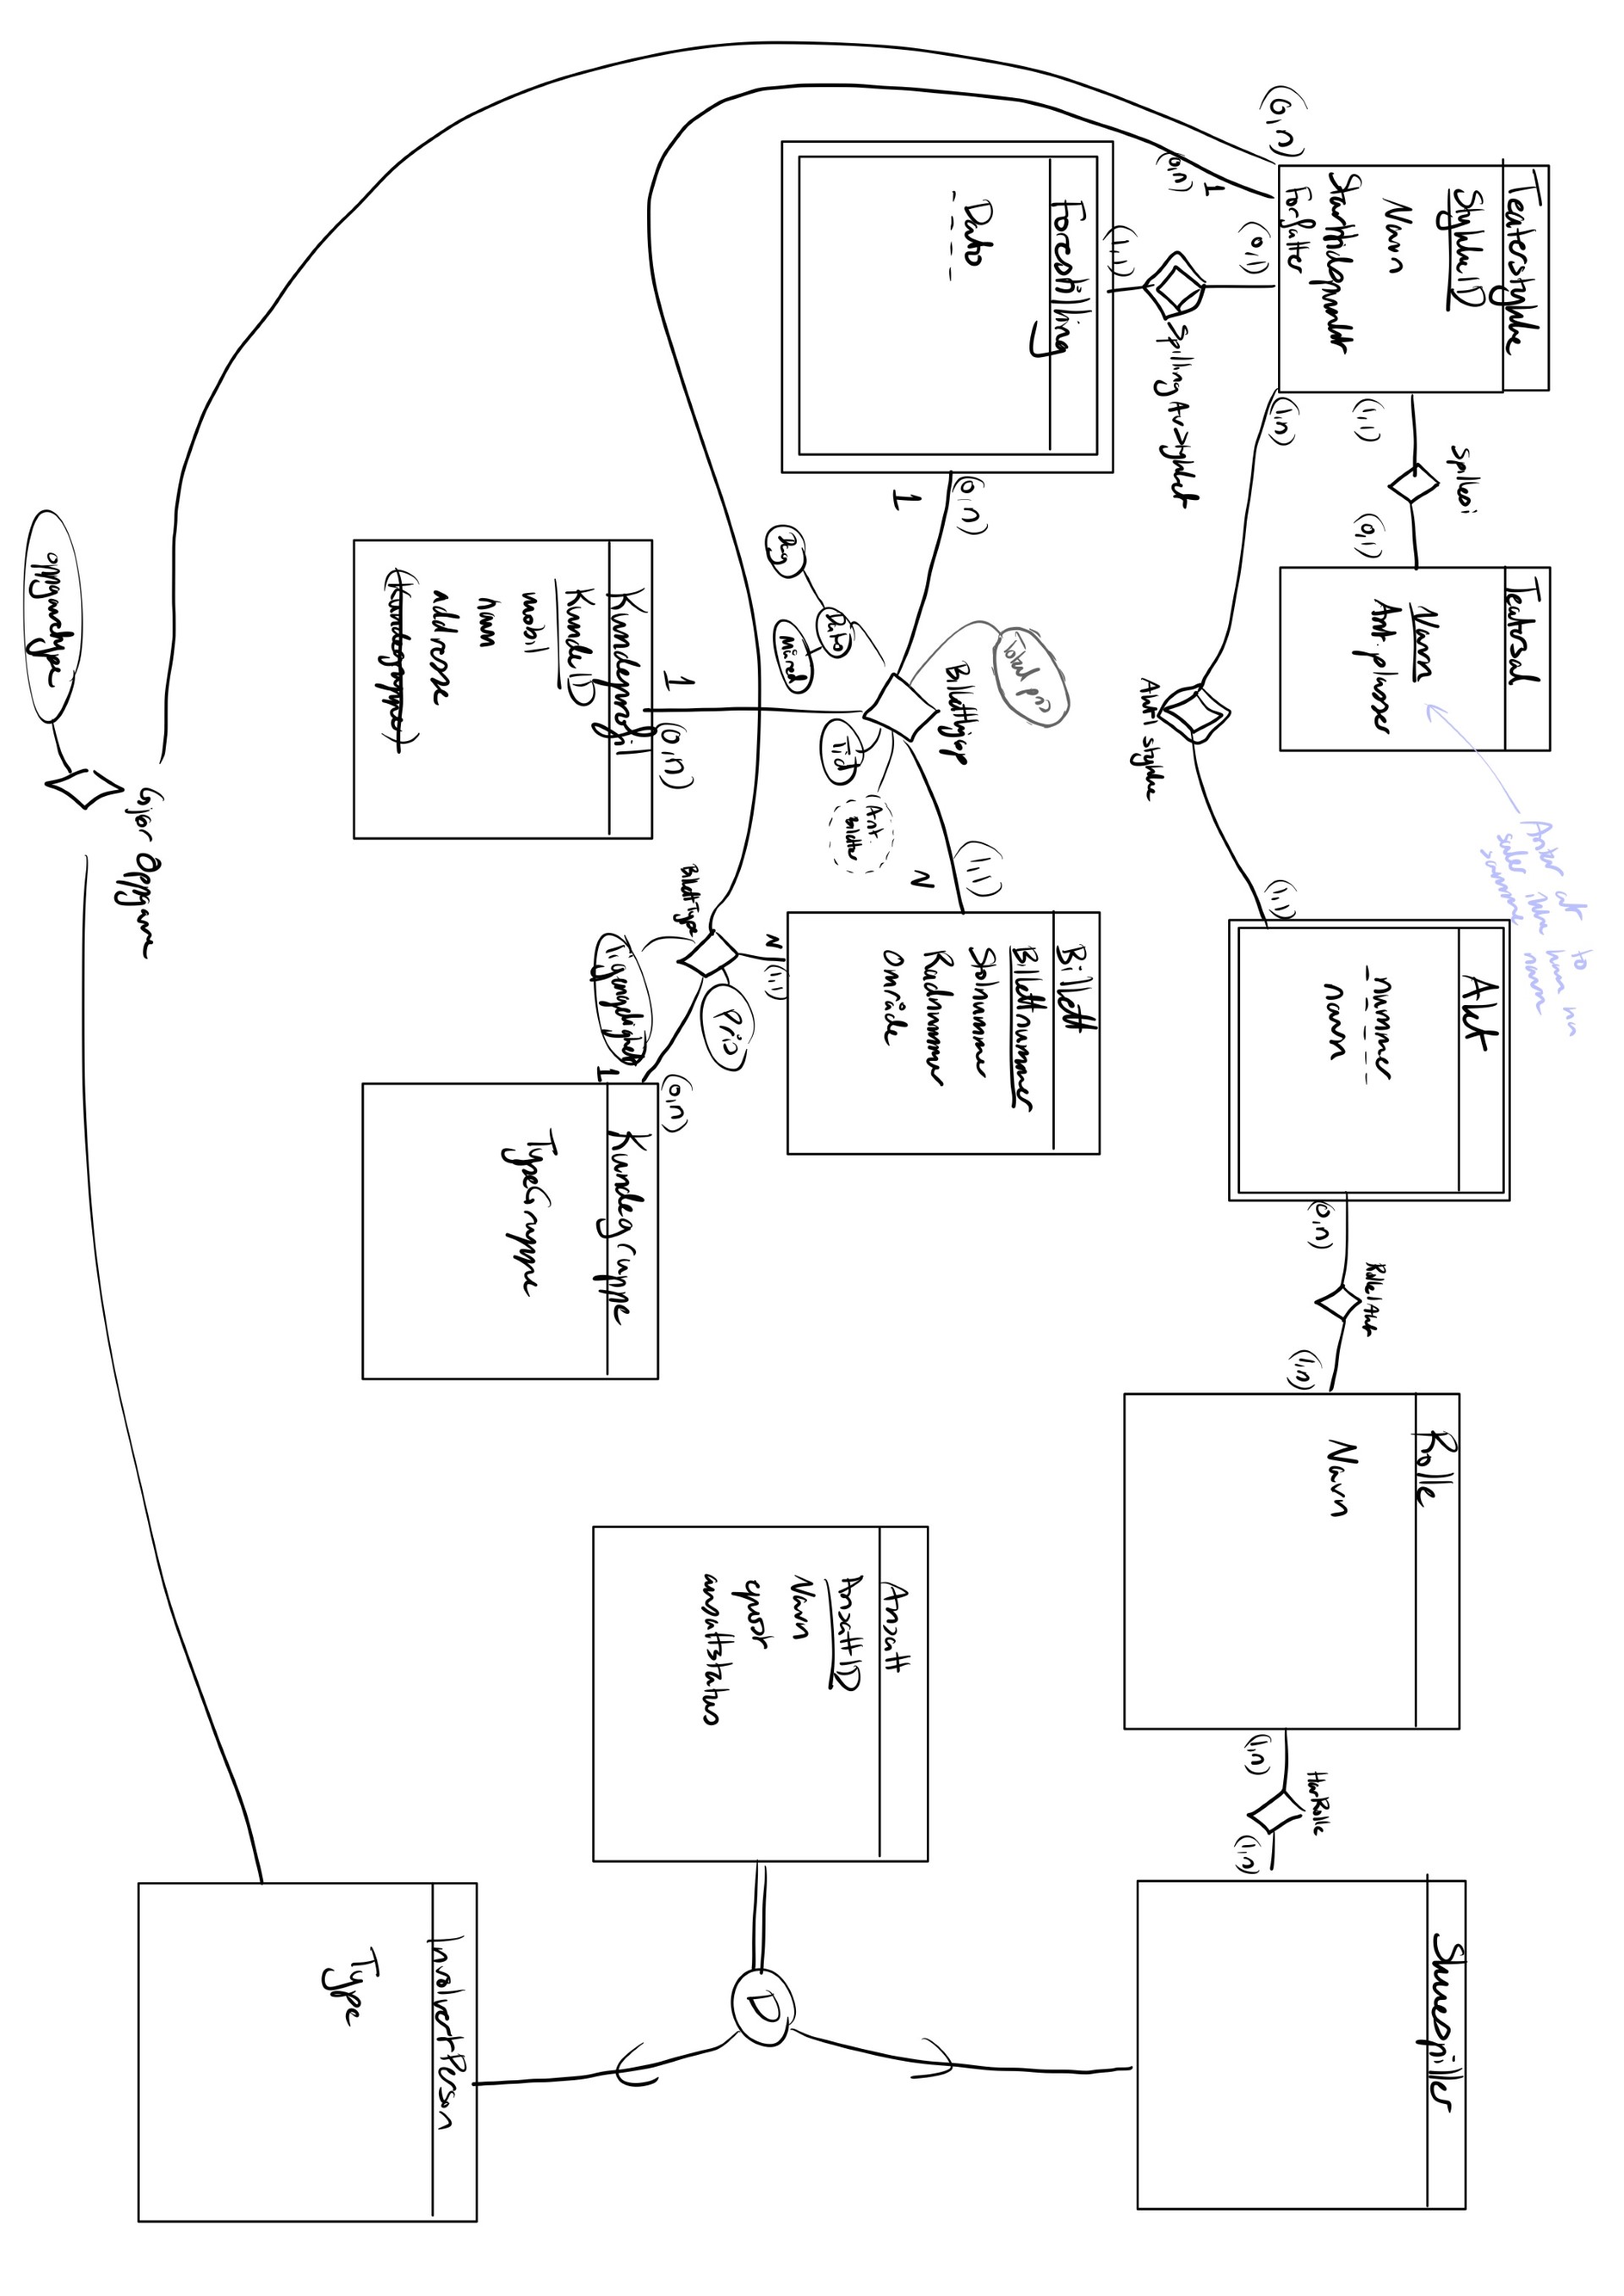 Teaterstykke
StykkeID
Navn
Starttidspunkt
Forfatter
Spillesi
(1,1)
(0,1)
Teatersal
Navn
Ant. plasser
Antar at to
saler ikke kan ha
samme navn
Akt
nummer
navn
RolleIAkt
(0,n)
(1,n)
Rolle
Navn
HarRolle
(1,n)
(1,n)
Skuespiller
(0,n)
(0,1)
(1,n)
(1,1)
1
(0,n)
SpillingAvStykket
AktI stykke
(1,1)
Forestilling
Dato
(0,n)
1
Total pris
Billettkjøp
(1,1)
N
Dato
Dag
Måned
Tid
Ant.
Billetter
Billett
Billettnummer
Stolnummer
Radnummer
Område
N (1,1)
Pris
BillettType
Tilgjengelighet
(0,n)
1
1 (0,n)
Kundeprofil
KundeID
mobil
navn
addresse
(Kundegruppe)
Kundegruppe
TypeGruppe
Ansatt
AnsattID
Navn
epost
ansattstatus
D
InvolvertPerson
Type
Gjør Oppgave
oppgavetype